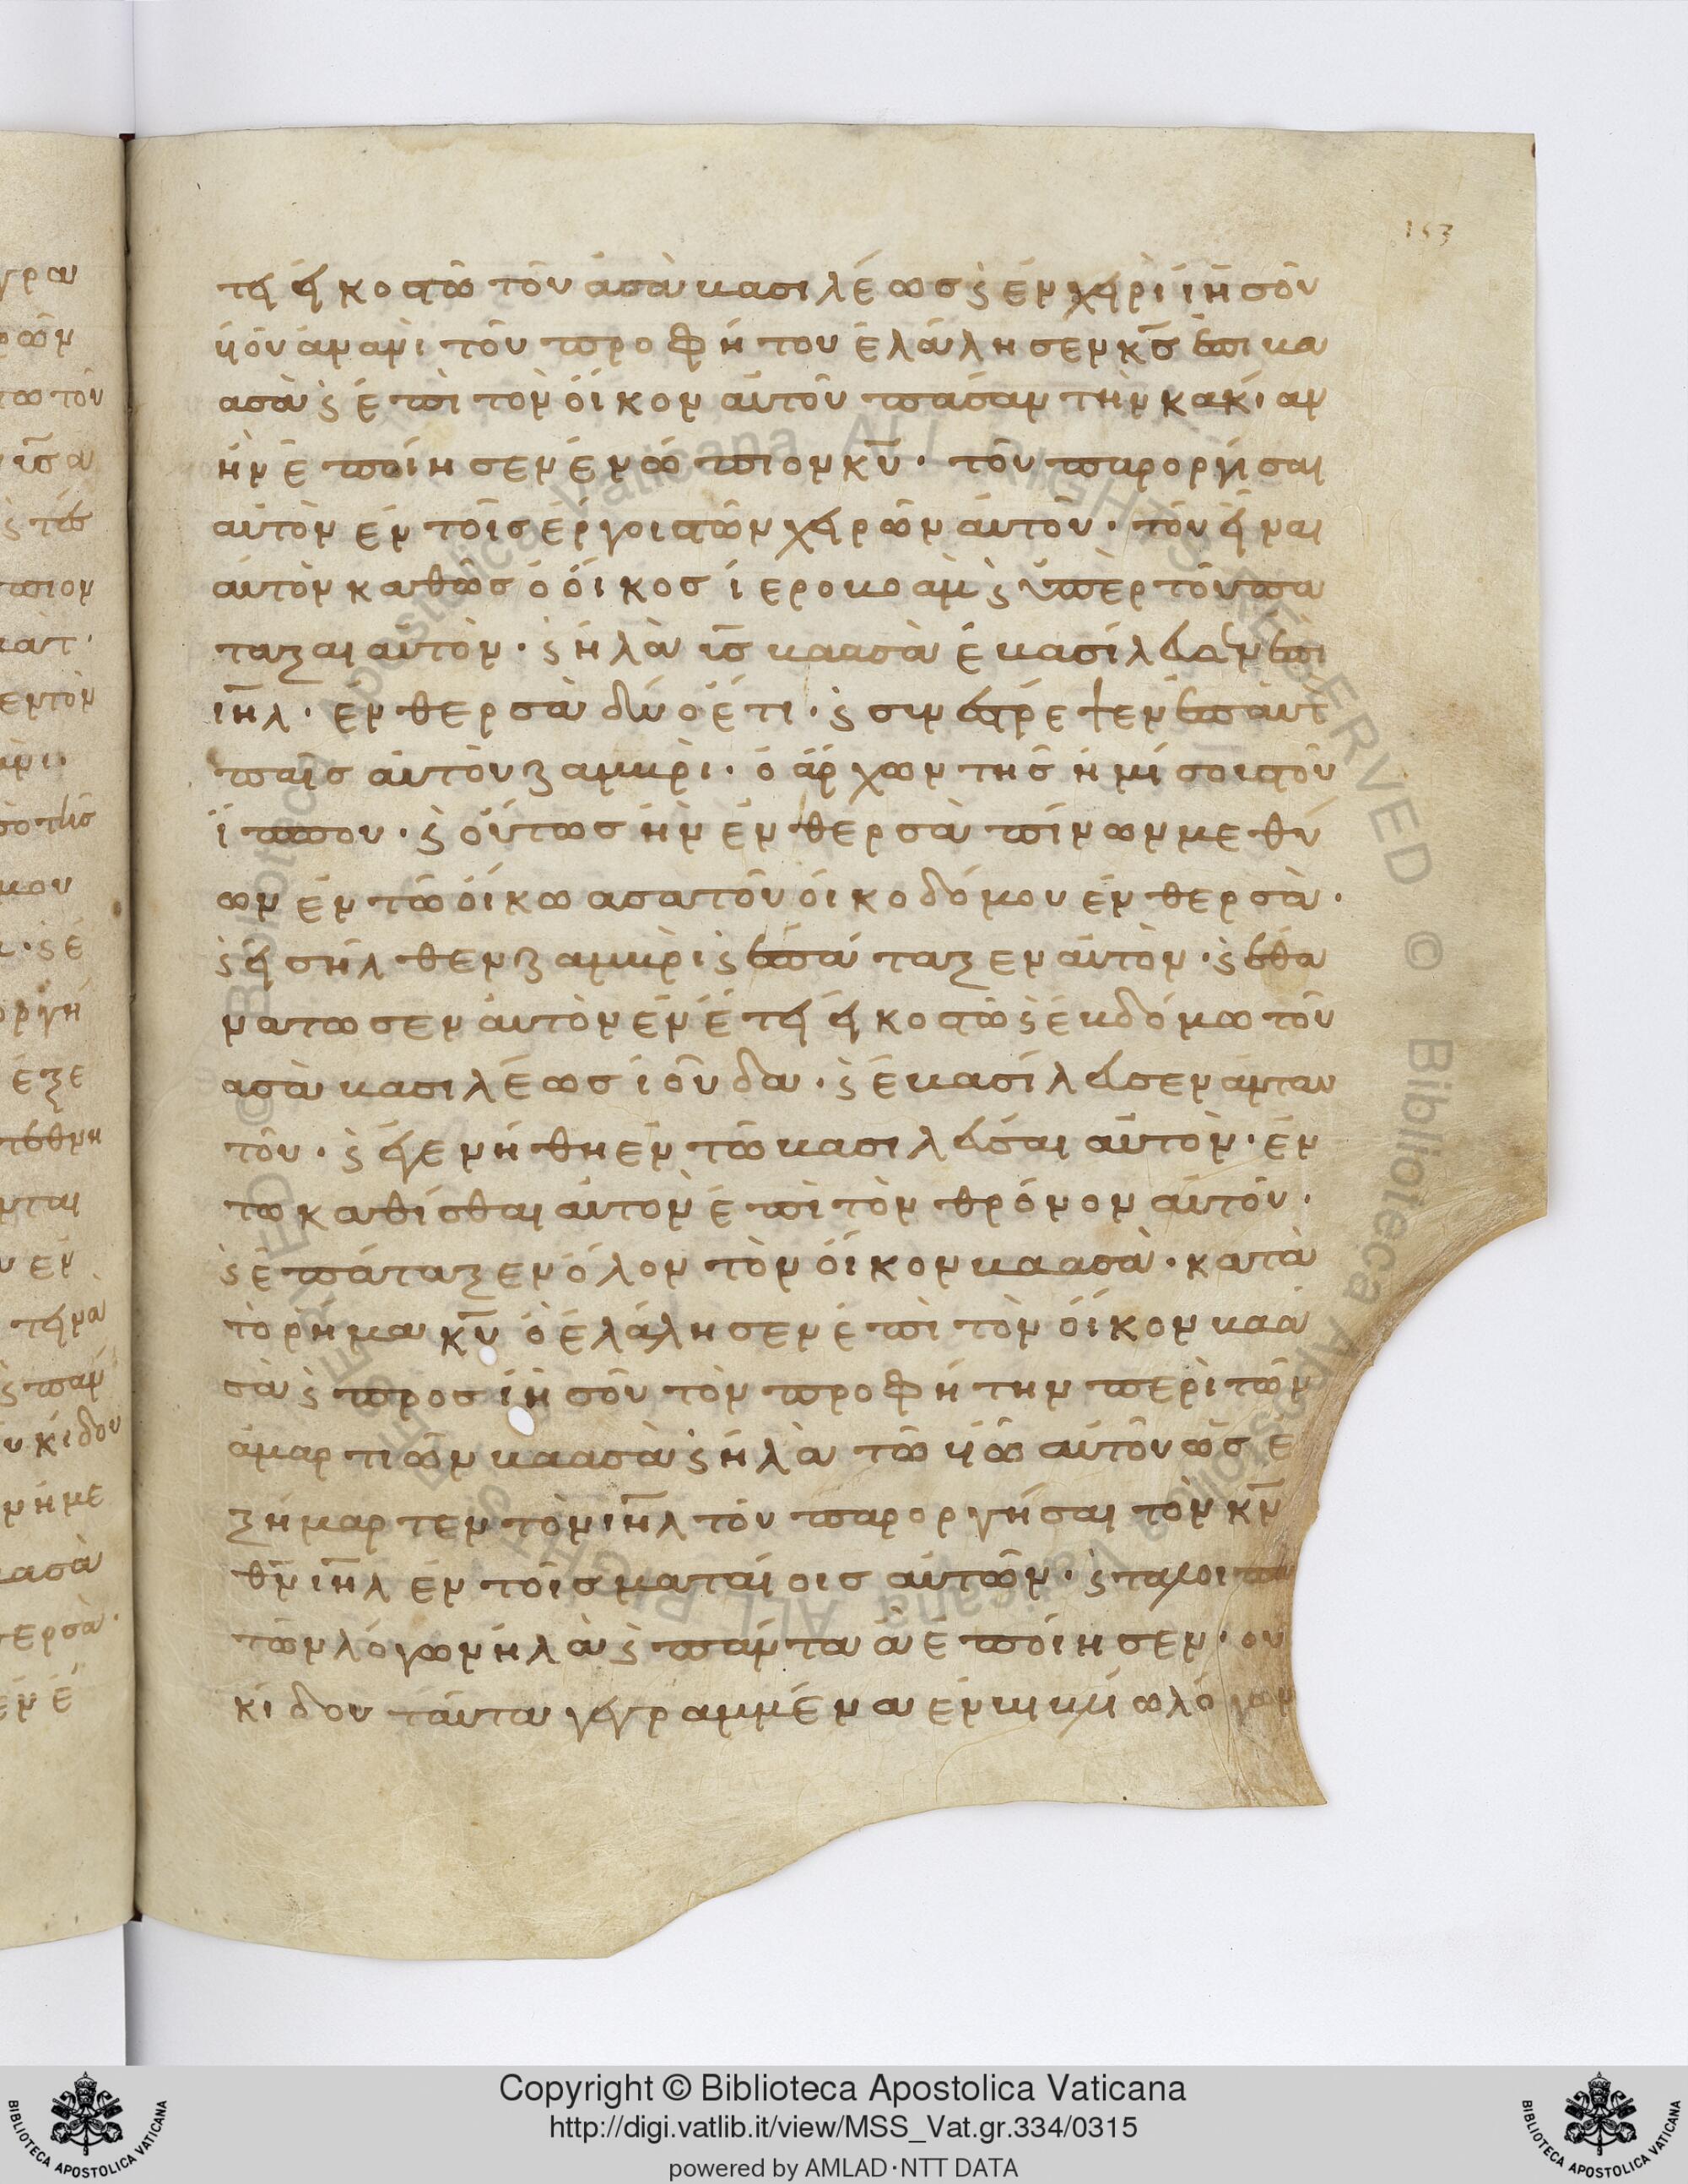 153
τει εἰκοστῶ τοῦ ἀσὰ βασιλέωσ ϛ ἐν χειρὶ ἰηοῦ
υἱοῦ ἀνανὶ τοῦ προφήτου ἐλάλησεν κ̅ς̅ ἐπι βα
ασὰ ϛ ἐπὶ τὸν οἶκον αὐτοῦ πᾶσαν τὴν κακίαν
ἣν ἐποίησεν ἐνώπιον κ̅υ̅· τοῦ παροργίσαι
αὐτὸν ἐν τοῖσ ἔργοισ τῶν χειρῶν αὐτοῦ· τοῦ εἶναι
αὐτὸν καθῶσ ὁ οἶκοσ ἱεροβοὰμ ϛ ὑπὲρ τοῦ πα
ταξαι αὐτὸν· ϛ ἠλὰ υ̅ς̅ βαασὰ ἐβασίλευσεν ἐπὶ
ι̅η̅λ̅· ἐν θερσὰ δύο ἔτη· ϛ συνέστρεψεν ἐπ αὐτ
παῖσ αὐτοῦ ζαμβρὶ· ὁ ἄρχων τῆσ ἡμίσου τοῦ
ἵππου· ϛ οὗτοσ ἦν ἐν θερσὰ πίνων μεθύ
ων ἐν τῶ οἴκω ασα τοῦ οἰκοδόμου ἐν θερσὰ·
ϛ εἰσῆλθεν ζαμβρὶ ϛ ἐπάταξεν αὐτὸν· ϛ ἐθα
νατωσεν αὐτὸν ἐν ἔτει εἰκοστῶ ϛ ἑβδόμω τοῦ
ασὰ βασιλέωσ ἰοῦδα· ϛ ἐβασίλευσεν ἀνταυ
τοῦ· ϛ ἐγενήθη ἐν τῶ βασιλεῦσαι αὐτὸν· ἐν
τω καθίσθαι αὐτὸν ἐπὶ τὸν θρόνον αὐτοῦ·
ϛ ἐπάταξεν ὅλον τὸν οἶκον βαασὰ· κατὰ
τὸ ρῆμα κ̅υ̅ ὃ ἐλάλησεν ἐπὶ τὸν οἶκον βαα
σὰ ϛ προσ ἰηοῦ τὸν προφήτην περὶ τῶν
ἁμαρτιῶν βαασὰ ϛ ἠλὰ τῶ υἱῶ αὐτοῦ ὡσ ἐ
ξήμαρτεν τὸν ι̅η̅λ̅ τοῦ παροργῆσαι τὸν κ̅ν̅
θ̅ν̅ ι̅η̅λ̅ ἐν τοῖσ ματαίοισ αὐτῶν· ϛ τα λοιπα
τῶν λόγων ἠλὰ ϛ πάντα ἃ ἐποίησεν· οὐ
κ ἰδοὺ ταῦτα γεγραμμένα ἐν βιβλίω λόγων
Copyright © Biblioteca Apostolica Vaticana
http://digi.vatlib.it/view/MSS_Vat.gr.334/0315
powered by AMLAD·NTT DATA